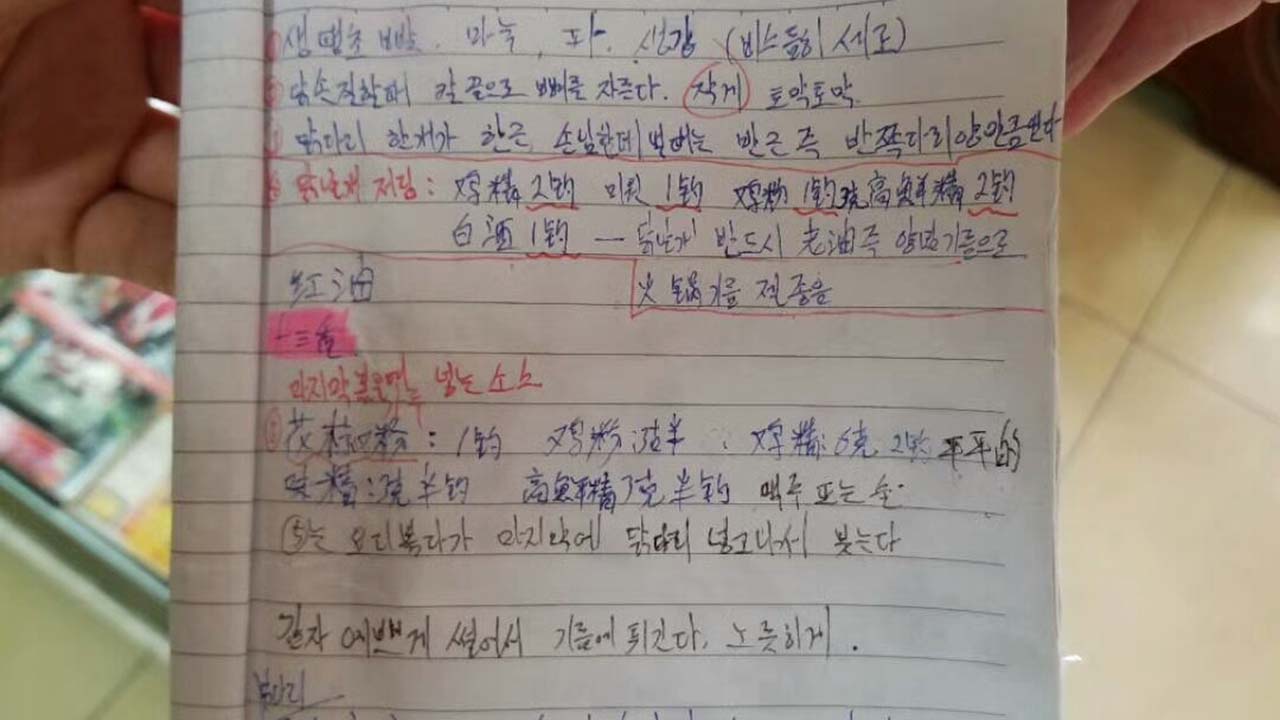 마늘, 파, 생강 (비스듬히 세로)
닭손질할때 칼끝으로 뼈를 자른다. 작게 토막토막
닭다리 한개가 한근 손님한테 반근 즉 반쪽다리양만큼
닭날개 저림: 鸡精 2勺 미원 1勺 鸡粉 1勺 高鲜精 2勺
白酒 1勺 — 닭날개 반드시 老油즉 양념기름으로
红油 火锅기름 젤좋음
十三香
마지막 넣는 소스
花椒粉: 1勺 鸡粉: 鸡精: 6克 2勺 平平的
味精: 3克 半勺 高鲜精 3克 半勺 맥주 또는 술
⑤는 오리볶다가 마지막에 닭다리 넣고나서 붓는다
감자 예쁘게 썰어서 기름에 튀긴다. 노릇하게.